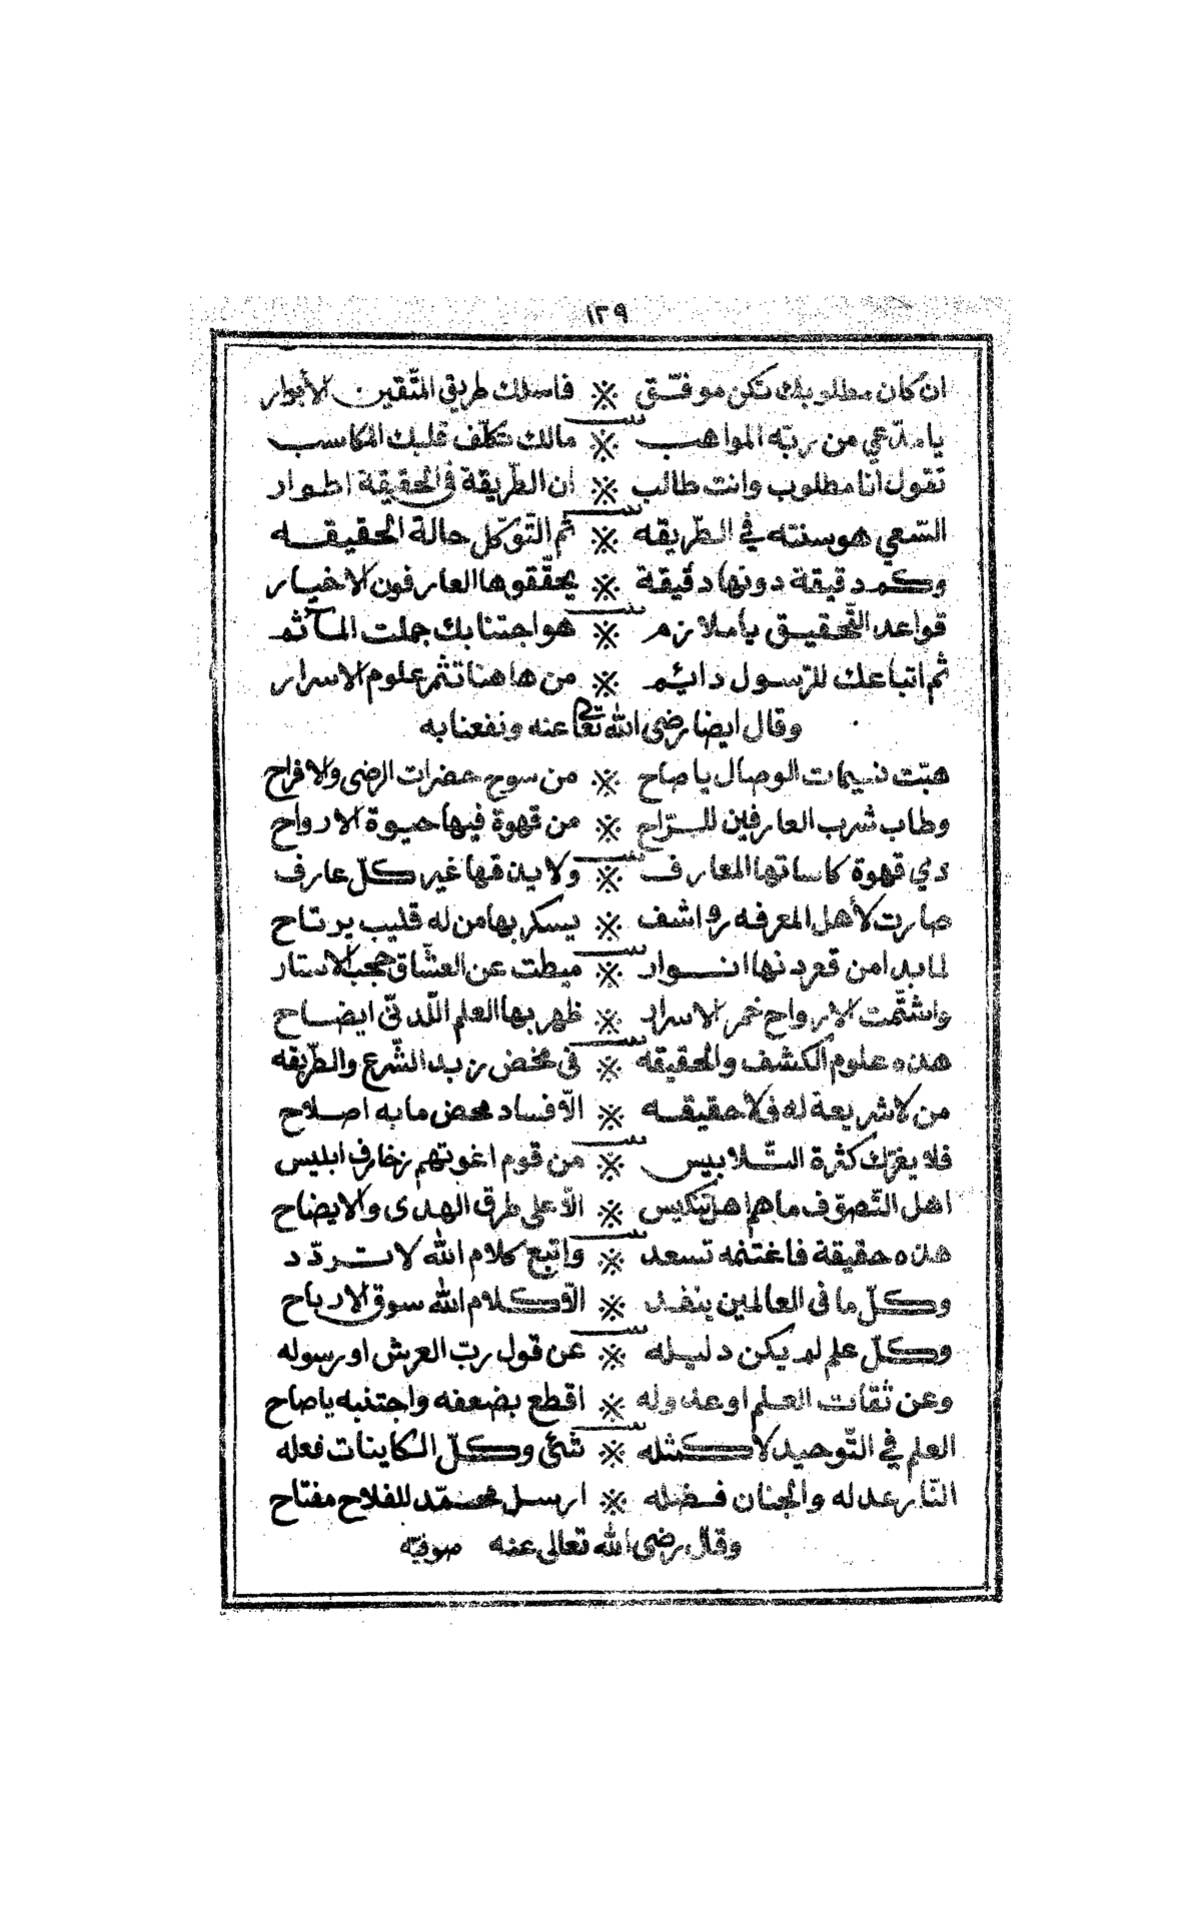 ١٢٩
ان كان مطلوبك تكن موفّق ※ فاسلك طريق المتّقين الأبرار
يا مدّعي من ربّه المواهب ※ مالك تكلّف قلبك المكاسب
تقول انا مطلوب وانت طالب ※ ان الطّريقة في الحقيقة اطوار
السّعي هو سنته في الطّريقه ※ ثم التّوكّل حالة الحقيقه
وكم دقيقة دونها دقيقة ※ يحقّقوها العارفون الاخيار
قواعد التّحقيق يا ملازم ※ هو اجتنابك جملت المآثم
ثم اتباعك للرّسول دايم ※ من هاهنا تثمر علوم الاسرار
وقال ايضا رضى الله تعالى عنه ونفعنا به
هبّت نسيمات الوصال يا صاح ※ من سوح حضرات الرضى والافراح
وطاب شرب العارفين للرّاح ※ من قهوة فيها حيوة الارواح
ذي قهوة كاساتها المعارف ※ ولا يذقها غير كلّ عارف
صارت لأهل المعرفه رواشف ※ يسكر بها من له قليب يرتاح
لما بدا من قعر دنها انوار ※ ميطت عن العشّاق حجب الاستار
واشتّمت الارواح خمر الاسرار ※ ظهر بها العلم اللّدنّي ايضاح
هذه علوم الكشف والحقيقه ※ في مخض زبد الشّرع والطّريقه
من لا شريعة له فلا حقيقه ※ الّا فساد محض ما به اصلاح
فلا يغرّك كثرة التّلابيس ※ من قوم اغوتهم زخارف ابليس
اهل التّصوّف ما هم اهل تنكيس ※ الّا على طرق الهدى والايضاح
هذه حقيقة فاغتنمه تسعد ※ واتبع كلام الله لا تردّد
وكلّ ما في العالمين ينفد ※ الّا كلام الله سوق الارباح
وكلّ علم لم يكن دليله ※ عن قول ربّ العرش او رسوله
وعن ثقات العلم او عدوله ※ اقطع بضعفه واجتنبه يا صاح
العلم في التّوحيد لا كمثله ※ شئ وكلّ الكاينات فعله
النّار عدله والجنان فضله ※ ارسل محمّد للفلاح مفتاح
وقال رضى الله تعالى عنه صوفيّه